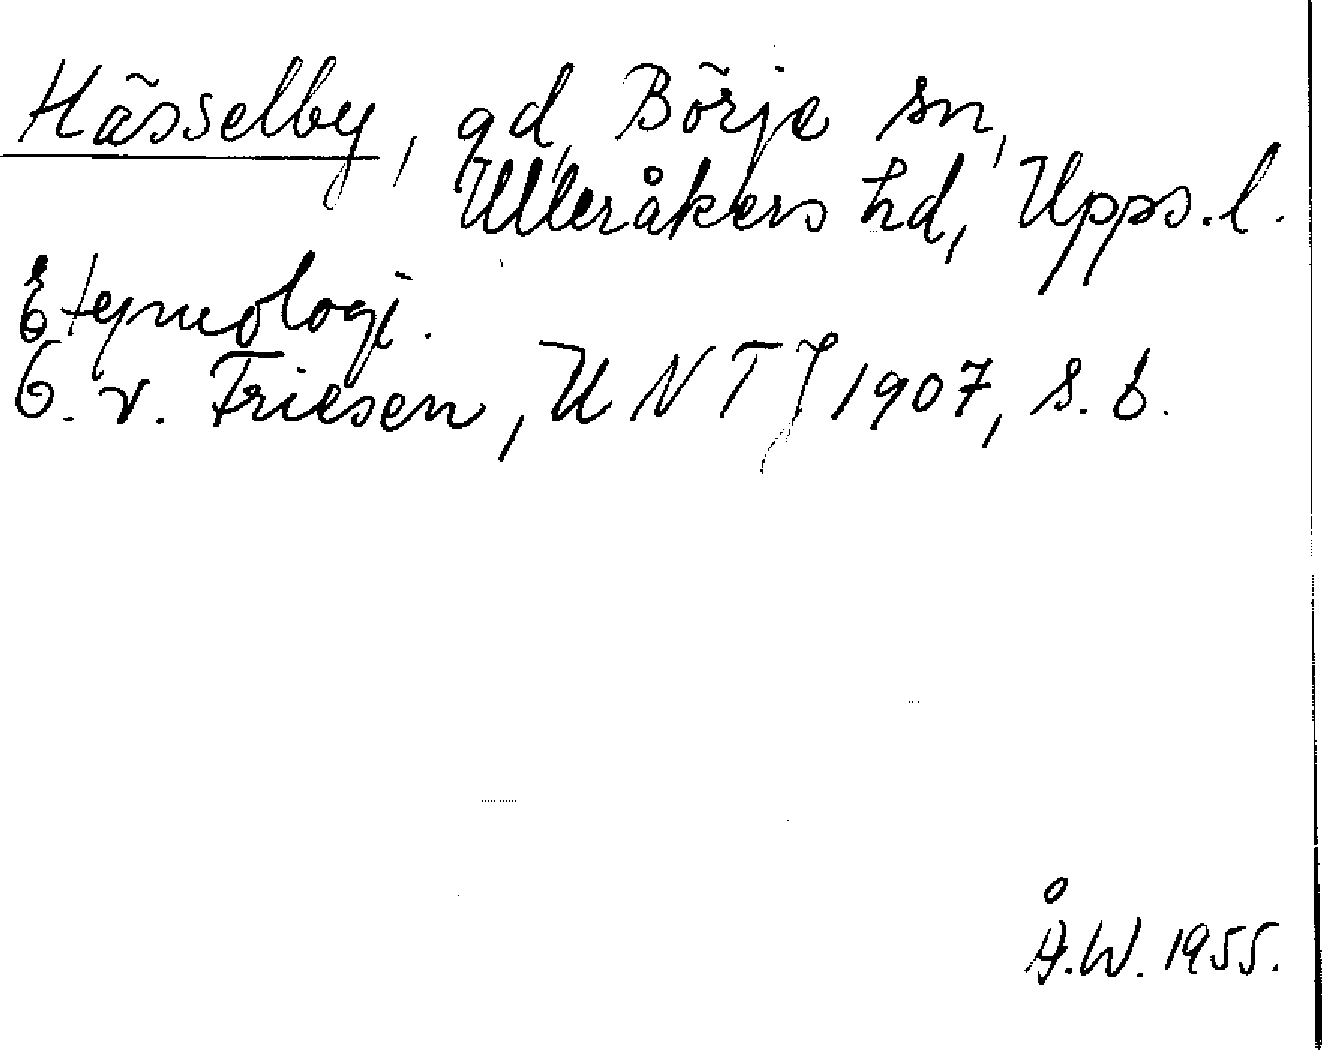 Hässelby, gd, Börje sn,
Ulleråkers hd, Upps.l.
Etymologi.
O. v. Friesen, UNTJ 1907, s. 6.
Å.W. 1955.